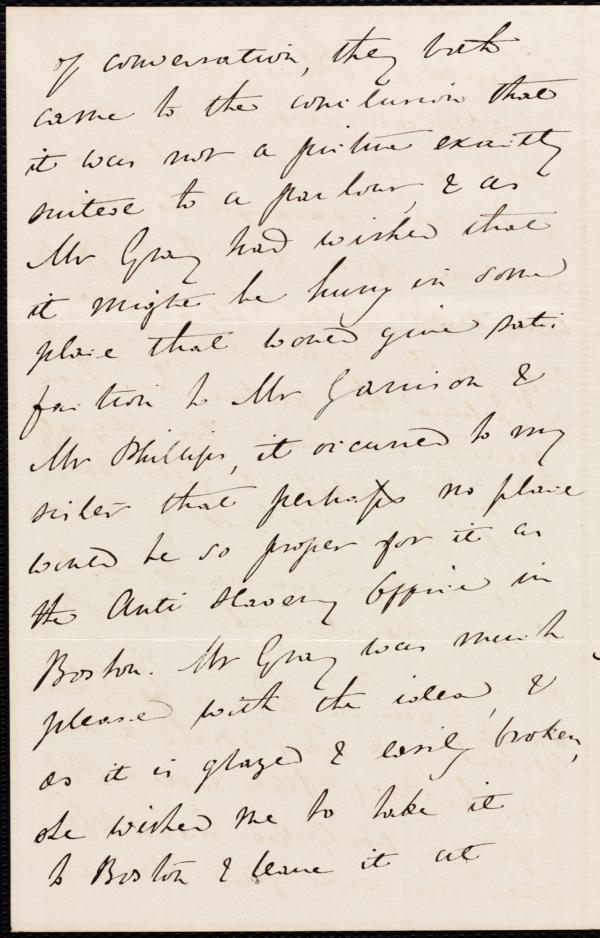 of conversation, they both
came to the conclusion that
it was not a picture exactly
suited to a parlour, & as
Mr Gray had wished that
it might be hung in some
place that would give satis
faction to Mr Garrison &
Mr Phillips, it occurred to my
sister that perhaps no place
would be so proper for it as
the Anti Slavery Office in
Boston. Mr Gray was much
pleased with the idea, &
as it is glazed & easily broken,
she wished me to take it
to Boston & leave it at